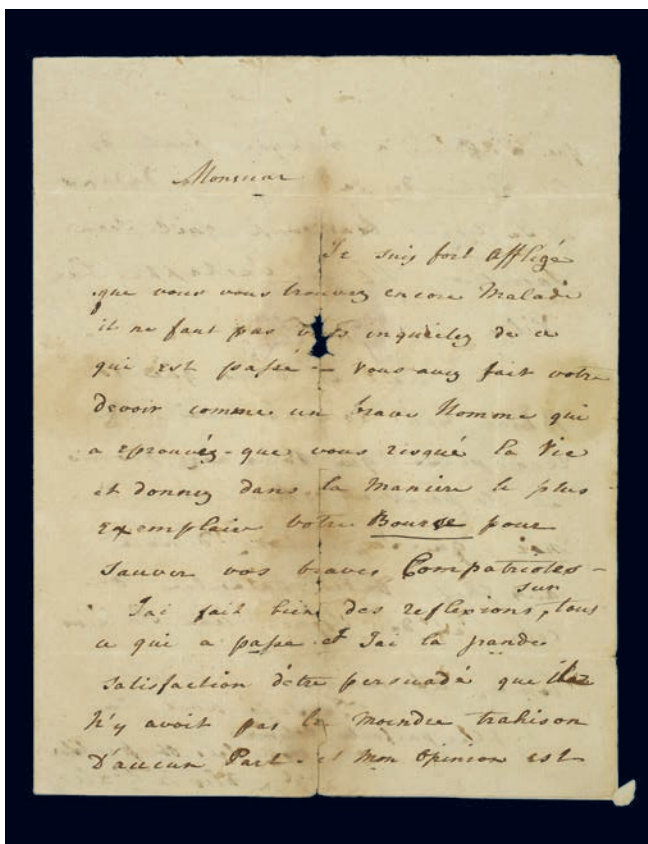 Monsieur
Je suis fort Affligé
que vous vous trouvez encore Malade
il ne faut pas inquietez de ce
qui est passé - vous avez fait votre
devoir comme un brave Homme qui
a eprouvéz - que vous risqué la Vie
et donnez dans la Maniere le plus
exemplaire votre Bourse pour
Sauver vos braves Compatriotes -
J'ai fait bien des reflexions, sur tous
ce qui a passe et J'ai la grande
Satisfaction d'etre persuadé que
n'y avoit pas la moindre trahison
D'aucun Part - et Mon Opinion est